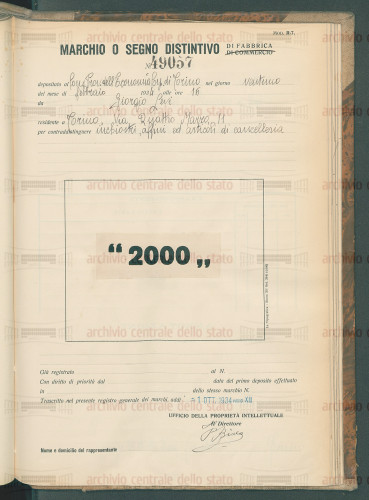 Mod. R-7.
MARCHIO O SEGNO DISTINTIVO DI FABBRICA
DI COMMERCIO
N. 49057
depositato al Cons. Prov. dell'Economia di Torino nel giorno ventuno
del mese di febbraio 1934 alle ore 16
da Giorgio
residente a Torino, Via Quattro Marzo 11
per contraddistinguere inchiostri, affini ed articoli di cancelleria
archivio centrale dello stato
" 2000 „
Già registrato al N.
Con diritto di priorità dal data del primo deposito effettuato
in dello stesso marchio N.
Trascritto nel presente registro generale dei marchi addì 1 OTT. 1934 ANNO XII
UFFICIO DELLA PROPRIETÀ INTELLETTUALE
Il Direttore
Nome e domicilio del rappresentante